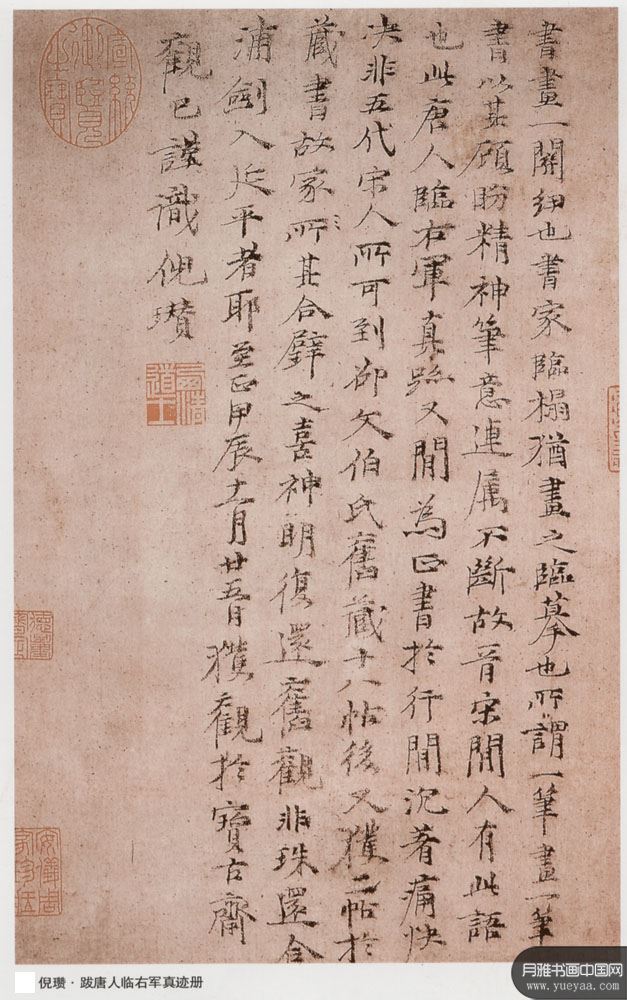 書畫一關紐也書家臨榻猶畫之臨摹也所謂一筆畫一筆
書以其顧盼精神筆意連属不斷故晉宋間人有此語
也此唐人臨右軍真跡又間為正書於行間沉著痛快
决非五代宋人所可到卲文伯氏舊藏十八帖後又獲二帖於
藏書故家所其合璧之喜神明復還舊觀非珠還合
浦劍入延平者耶至正甲辰十二月廿五日獲觀於寶古齋
觀已謹識倪瓚
宣統御覽之寶
安儀周家珍藏
倪瓒·跋唐人临右军真迹册
月雅书画中国网
www.yueyaa.com